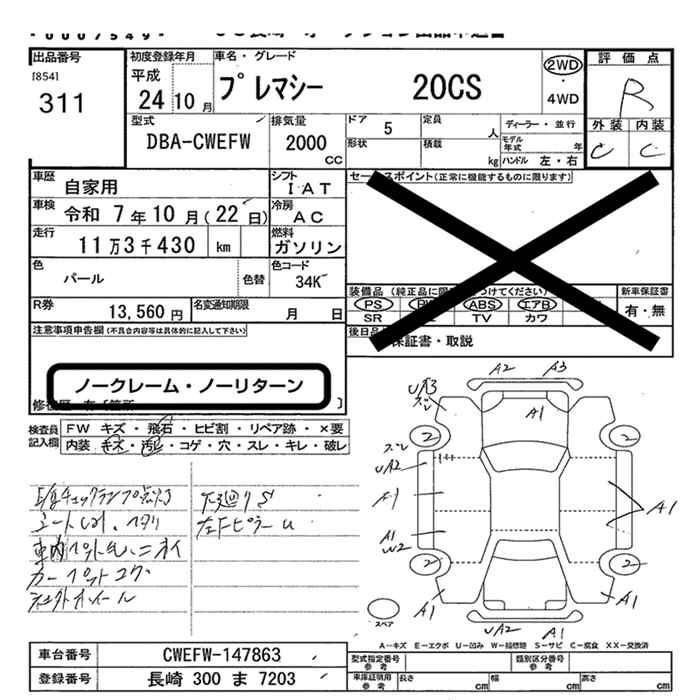 *00075497*
出品番号
[854]
311
初度登録年月
平成
24 10 月
車名・グレード
プレマシー 20CS
2WD
・
4WD
評価点
R
外装 内装
C C
型式
DBA-CWEFW
排気量
2000
CC
ドア
5
定員
人
形状
積載
kg
ディーラー・並行
モデル
年式
年
ハンドル 左・右
車歴
自家用
シフト
IAT
車検
令和 7年10月(22日)
冷房
AC
走行
11万3千430 km
燃料
ガソリン
色
パール
色替
色コード
34K
R券
13,560円
名変通知期限
月 日
セールスポイント(正常に機能するものに限ります)
装備品
PS ABS エアB
SR TV カワ
新車保証書
有・無
後日品
保証書・取説
注意事項申告欄(不具合内容等は具体的に記入して下さい)
ノークレーム・ノーリターン
検査員
記入欄
FW キズ・飛石・ヒビ割・リペア跡・×要
内装 キズ・汚レ・コゲ・穴・スレ・キレ・破レ
E/gチェックランプ点灯
シートしみ、ヘタリ
車内ペット毛、ニオイ
カーペットコゲ
下廻りS
左Fピラーu
A2 A3
UA3
ズレ
A1
2 2
ズレ
UA2
A1
A1
A1
W2
2 2
A1 A1
UA2 A1
スペア
A―キズ E―エクボ U―凹み W―補修跡 S―サビ C―腐食 XX―交換済
車台番号
CWEFW-147863
登録番号
長崎 300 ま 7203
型式指定番号
参考
類別区分番号
参考
車庫証明用
参考
長さ
cm
幅
cm
高さ
cm